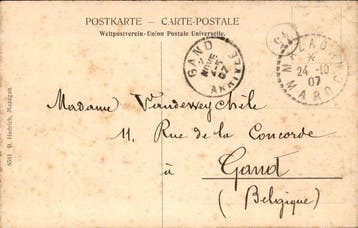 POSTKARTE — CARTE-POSTALE
Weltpostverein-Union Postale Universelle.
GAND
NOVE
07
ARRIVÉE
MAZAGAN
24-10
07
MAROC
Madame Vandeweyhèle
11, Rue de la Concorde
à
Gand
(Belgique)
8581 R. Hedrich, Mazagan